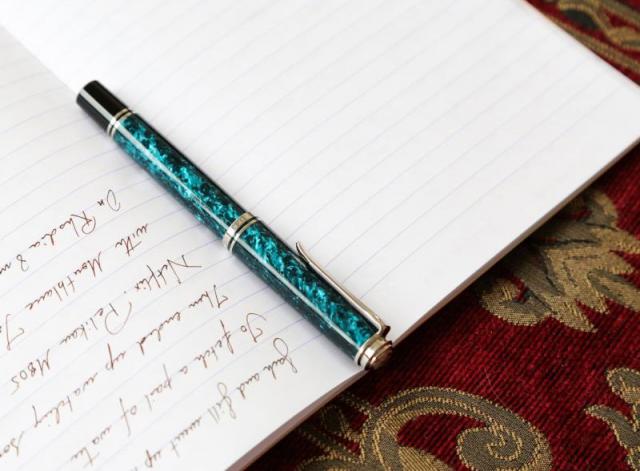 Jack and Jill went up
To fetch a pail of wate
Then ended up watching so
Netflix. Pelikan M805
with Montblanc To
On Rhodia